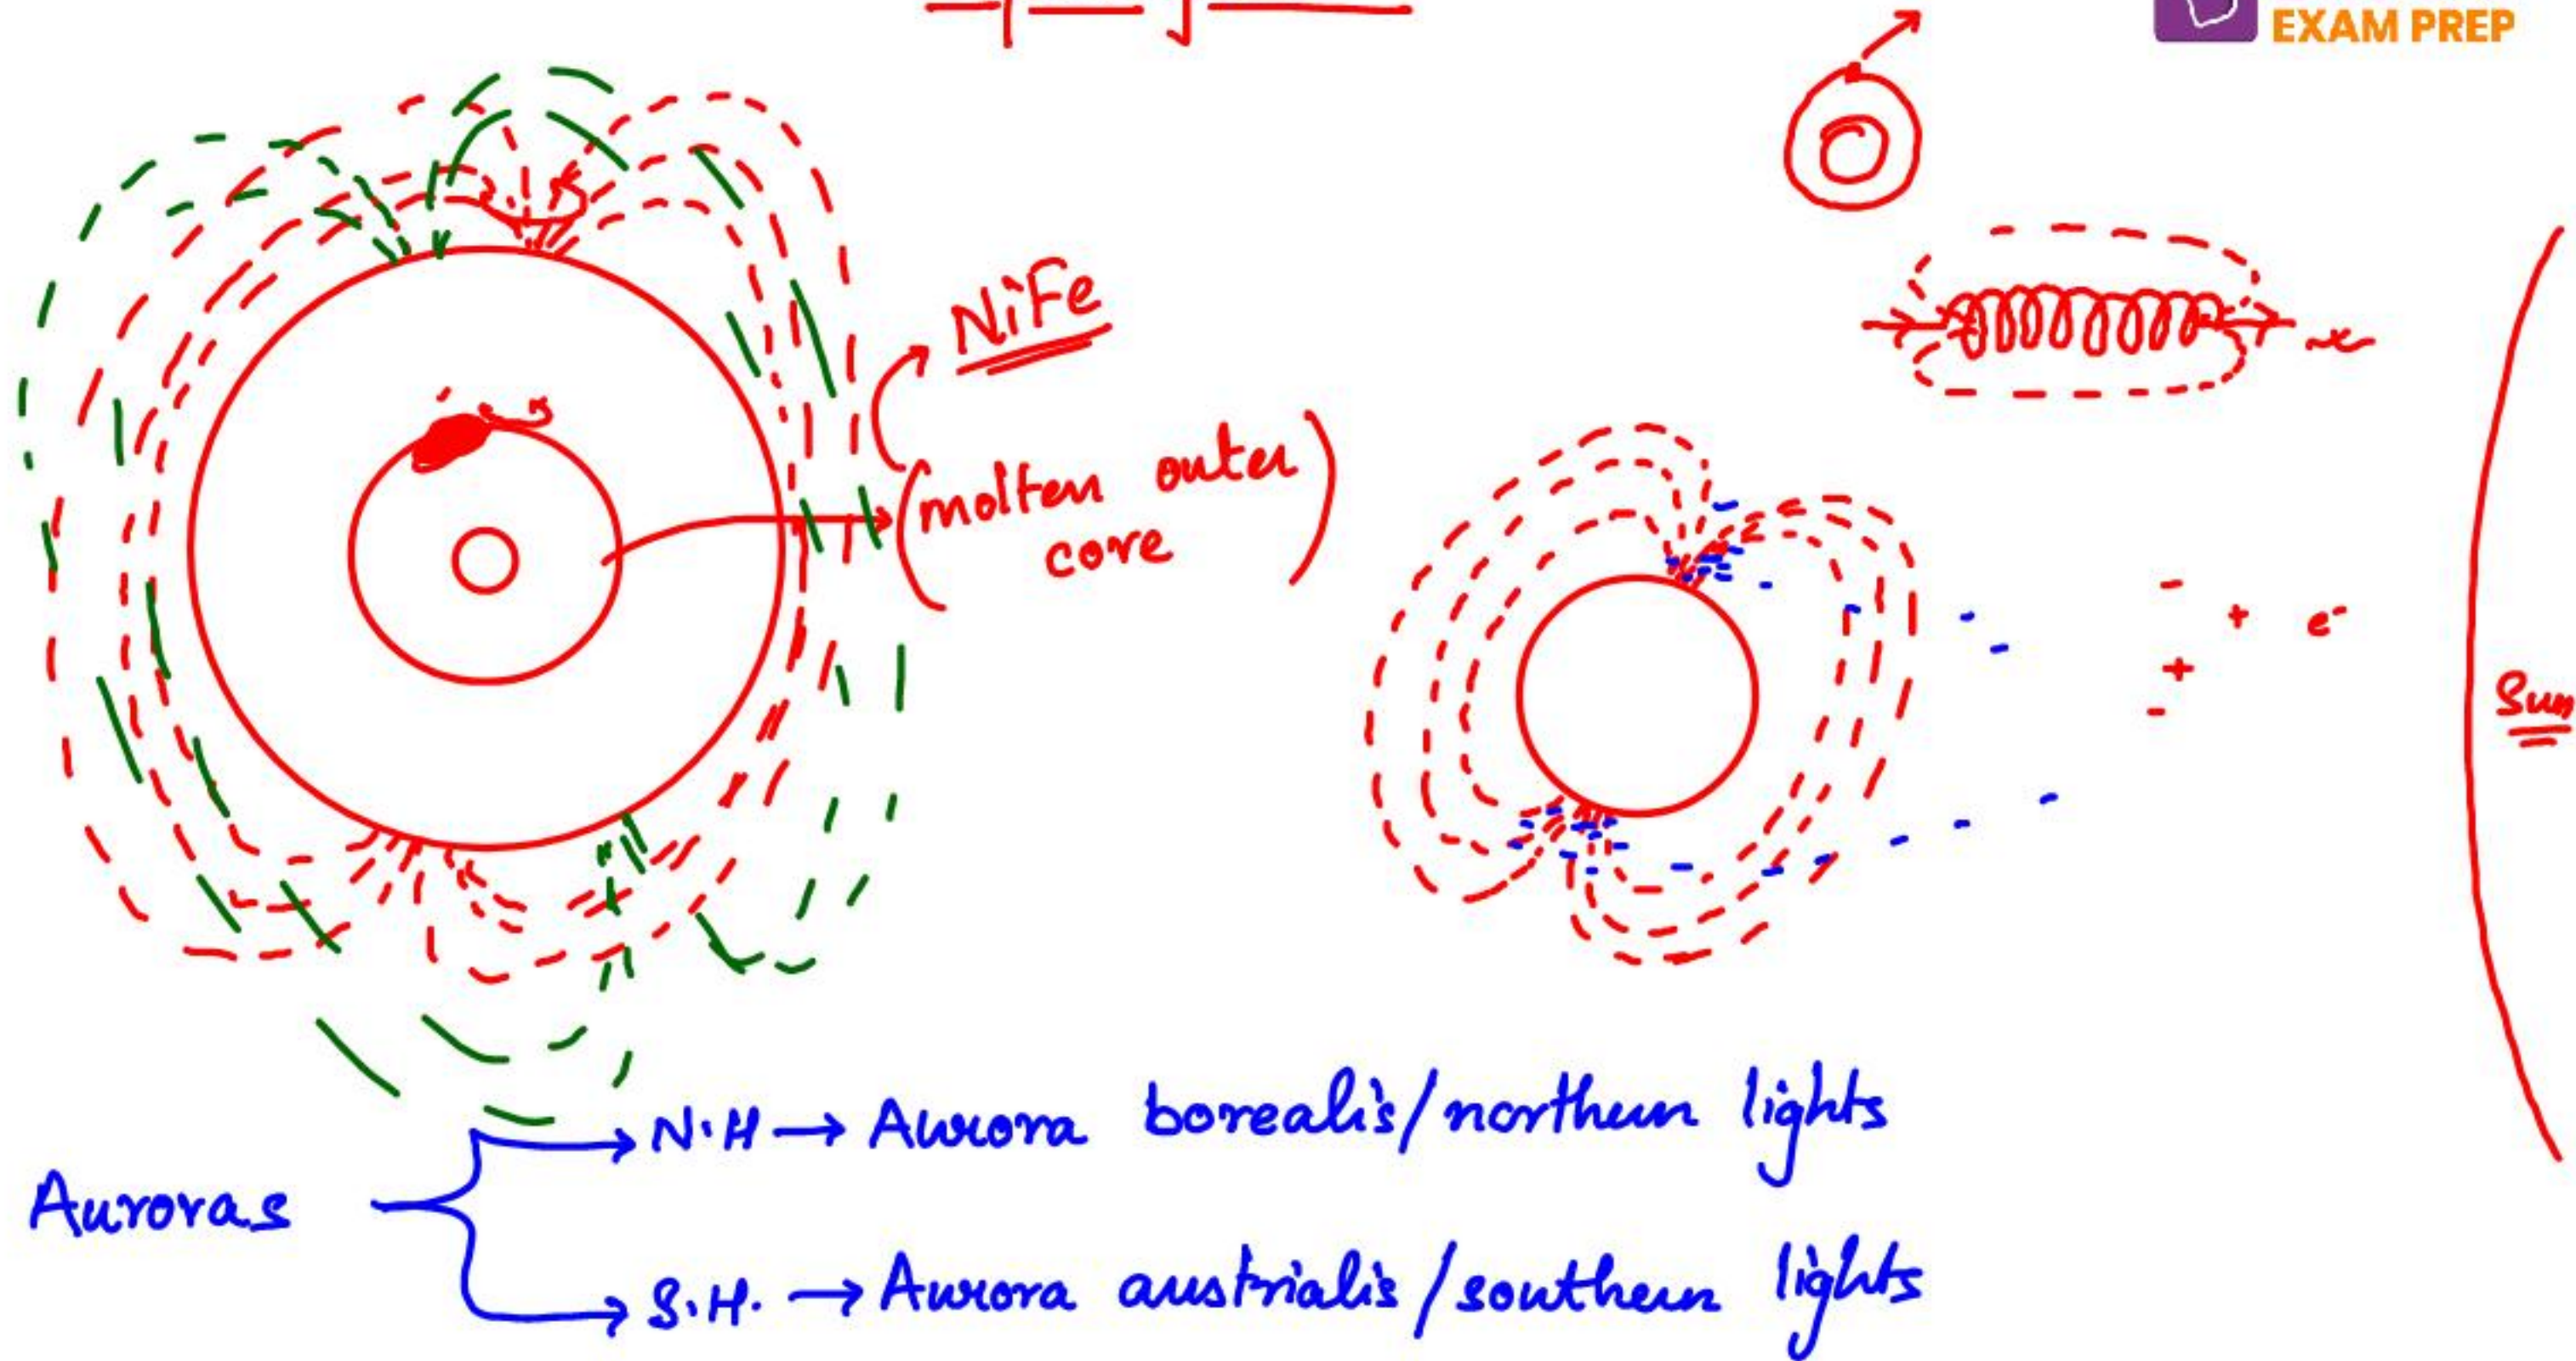 EXAM PREP
NiFe
(molten outer
core)
- + e-
+
-
Sun
Auroras
N.H → Aurora borealis/northern lights
S.H. → Aurora austrialis/southern lights